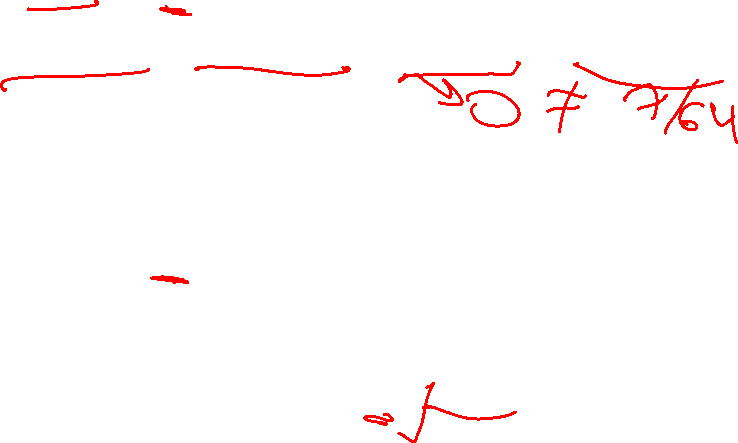 0 ≠ 7/64